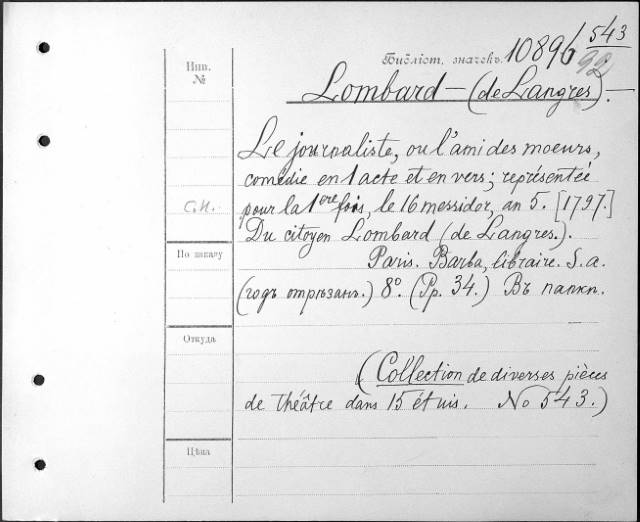 Библіот. значекъ. 10896/543
92
Инв.
№
Lombard — (de Langres). —
Le journaliste, ou l'ami des moeurs,
comédie en 1 acte et en vers; représentée
pour la 1ere fois, le 16 messidor, an 5. [1797.]
Du citoyen Lombard (de Langres.).
По заказу
Paris. Barba, libraire. S.a.
(годъ отрѣзанъ.) 8°. (Pp. 34.) Въ папкѣ.
Откуда
(Collection de diverses pièces
de théâtre dans 15 étuis. No 543.)
Цѣна